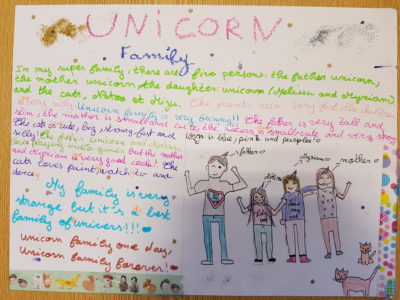 UNICORN
Family
In my super family, there are five person: the father unicorn,
the mother unicorn, the daughter unicorn (Melissa and Myriam)
and the cats, et Mizu. The parents run very fast, the children
very Unicorn family is very funny!! The father is very tall and
slim, the mother is small and cute, the sisters is small cute and very strong
The cat is cute, big, strong fast and
silly! The father unicorn and Melissa
and playing video games. But the mother
and Myriam is very good cook! The
cats loves paint, watch tv and
dance.
is blue, pink and
father
Myriam
mother
My family is very
strange but it's a best
family of univers!!!
Unicorn family one day,
Unicorn family forever!